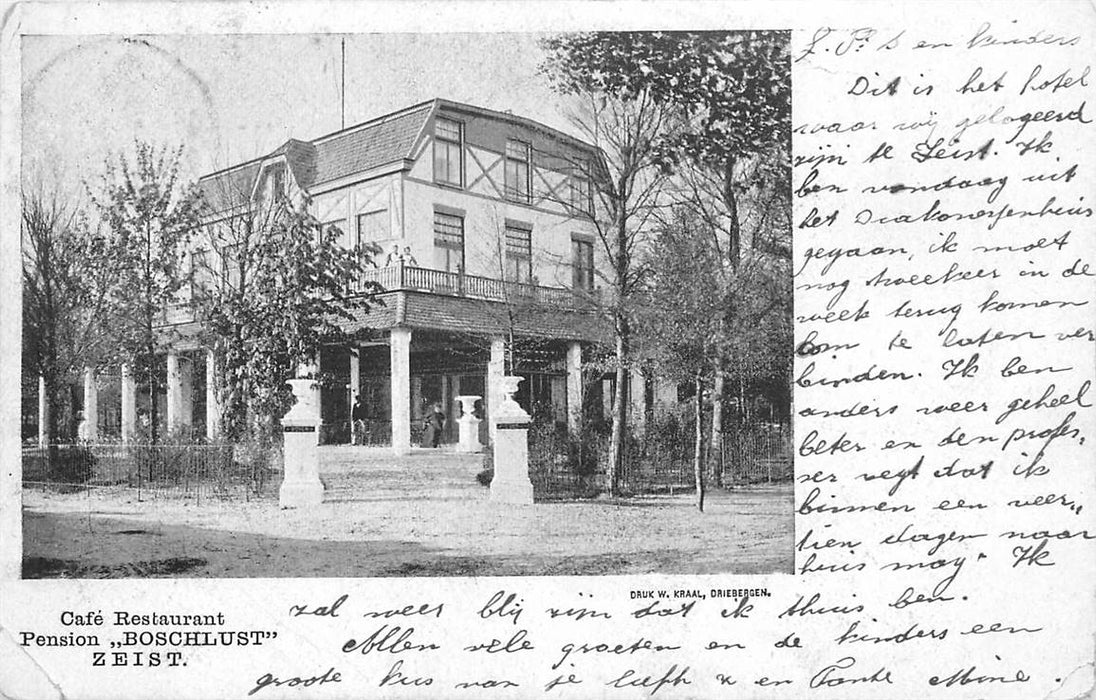 en kinders
Dit is het hotel
waar wij gelogeerd
zijn te Zeist. Ik
ben vandaag uit
het Diakonessenhuis
gegaan, ik moet
nog tweekeer in de
week terug komen
om te laten ver
binden. Ik ben
anders weer geheel
beter en den profes„
ser zegt dat ik
binnen een veer„
tien dagen naar
huis mag. Ik
DRUK W. KRAAL, DRIEBERGEN.
zal weer blij zijn dat ik thuis ben.
Allen vele groeten en de kinders een
groote kus van je liefh en Tante Mine.
Café Restaurant
Pension „BOSCHLUST”
ZEIST.